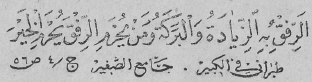 الرِّفْقُ بِهِ الزِّيَادَةُ وَالْبَرَكَةُ وَمَنْ يُحْرَمِ الرِّفْقَ يُحْرَمِ الْخَيْرَ
طبرانی فی الکبیر . جامع الصغیر ج ٤ ص ٥٦